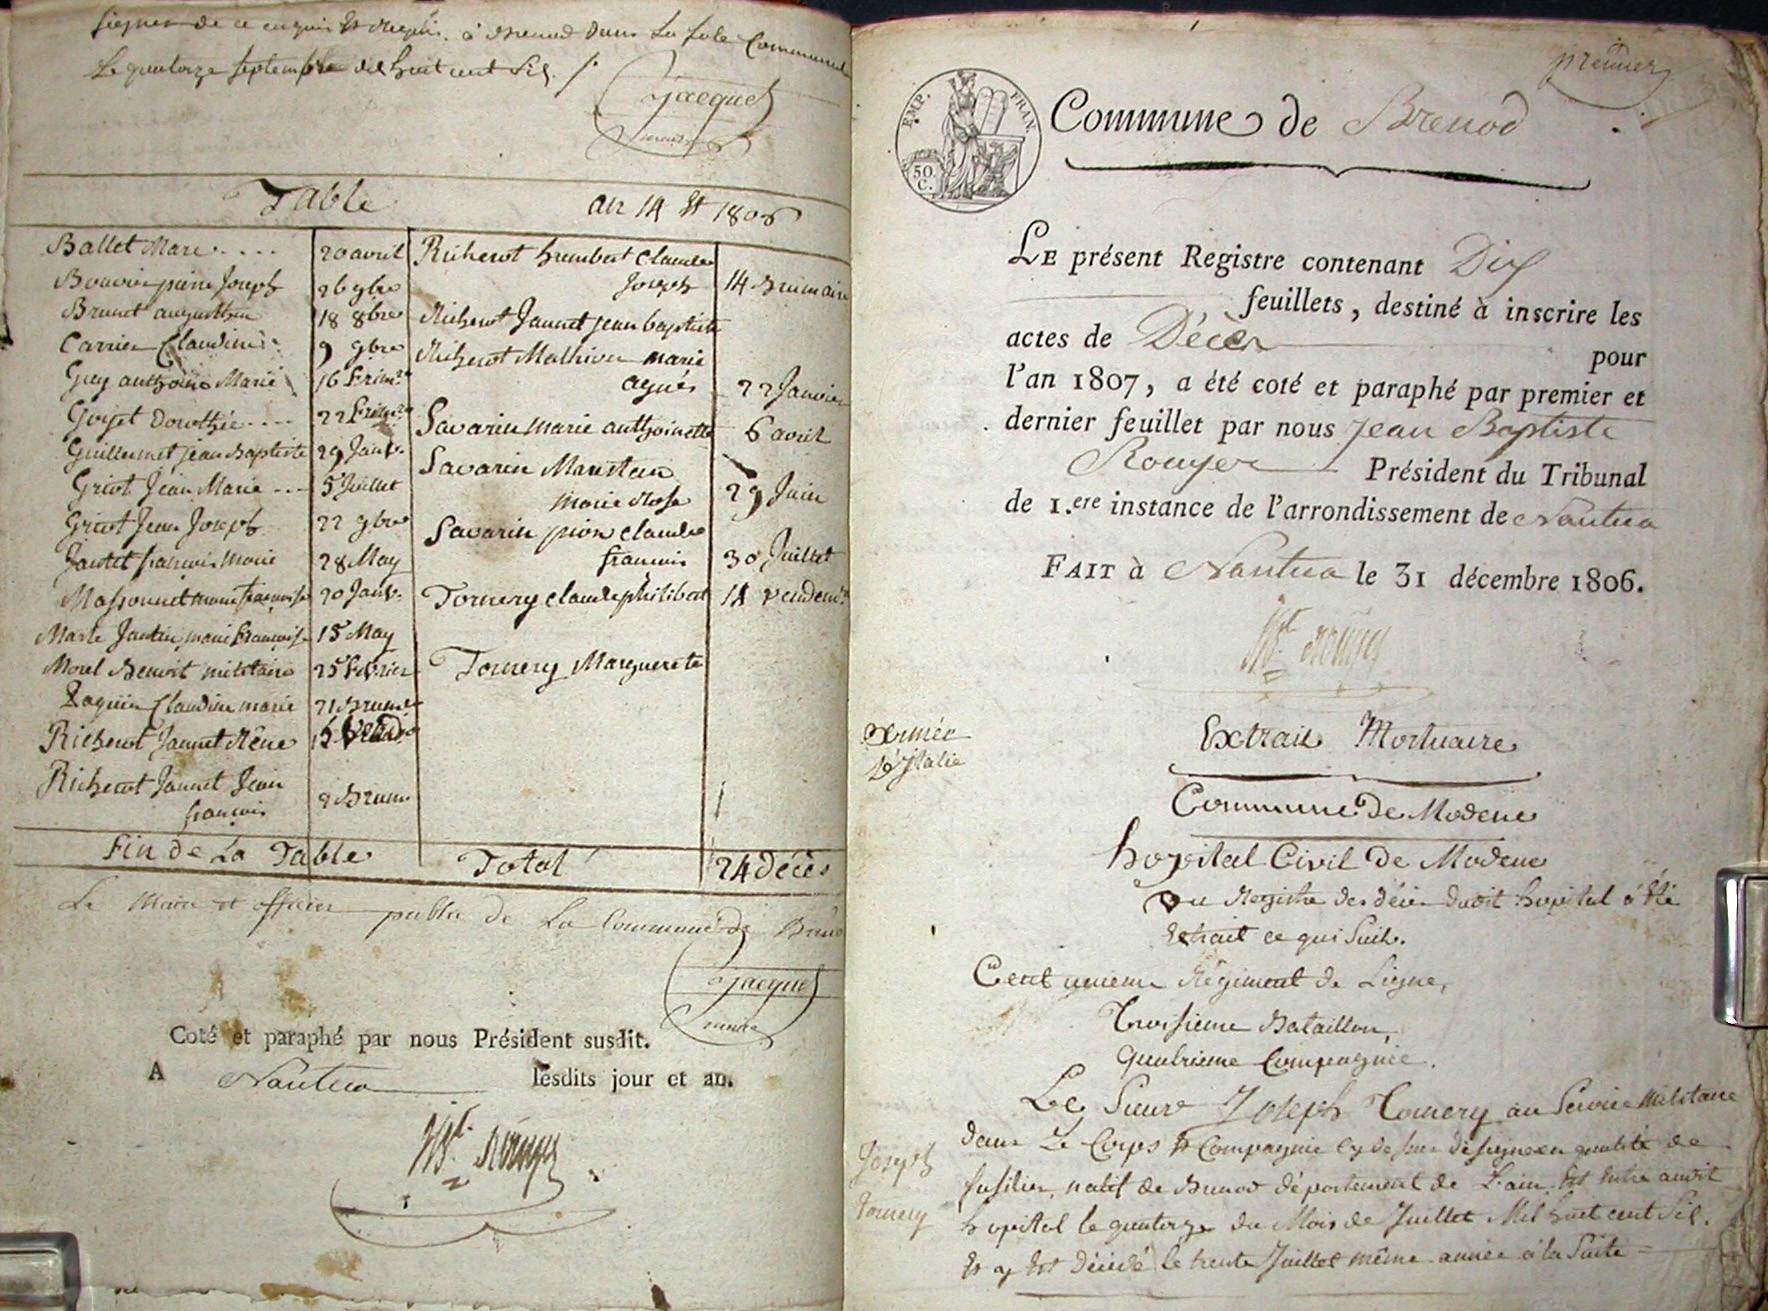 signer de ce enquis et requis. à Brenod dans la sale Commune
le quatorze septembre mil huit cent six.
Jacquet
maire
Table an 14 et 1806
Ballet Marc .... 20 avril
Bouvier pierre Joseph 26 9bre
Brunet augusthin 18 8bre
Carrier Claudine 9 9bre
Guy anthoine Marie 16 frimre
Goyet Dorothée .... 22 frimre
Guillermet jean Baptiste 29 Janvr.
Griot Jean Marie ... 5 Juillet
Griot Jean Joseph 22 9bre
Jantet françois marie 28 May
Massonnet marie françoise 20 Janvr.
Marle Jantin marie françoise 15 May
Morel Benoit militaire 25 fevrier
Claudine marie 21 Brume
Richerot Jannet Réne
Richerot Jannet Jean
françois 2 Brum
Richerot humbert Claude
Joseph 14 Brumaire
Richerot Jannet jean baptiste
Richerot Mathieu marie
agnés 22 Janvier
Savarin marie anthoinette 6 avril
Savarin
marie Rose 29 Juin
Savarin pion claude
francois 30 Juillet
Tornery claude philibert 14 vendemre
Tornery Marguerete
Fin de La Table Total 24 décès
Le Maire et officier public de La Commune de Brenod
Jacquet
maire
Coté et paraphé par nous Président susdit.
A Nantua lesdits jour et an.
premier
EMP. FRAN.
50 C.
Commune de Brenod
LE présent Registre contenant Dix
feuillets, destiné à inscrire les
actes de Décès pour
l'an 1807, a été coté et paraphé par premier et
dernier feuillet par nous Jean Baptiste
Rouyer Président du Tribunal
de 1.ere instance de l'arrondissement de Nantua
FAIT à Nantua le 31 décembre 1806.
Extrait Mortuaire
Armée
d'Italie
Commune De Modene
hopital Civil De Modene
Du Registre des décès dudit hopital à été
Extrait ce qui suit.
Cent unieme Régiment de Ligne,
Troisieme Bataillon,
Quatrieme Compagnie.
Le Sieur Joseph Tornery au Service Militaire
dans Le Corps et Compagnie cy dessus désignes en qualité de
fusilier, natif de Brenod département de L'ain, est entré audit
hopital le quatorze du Mois de Juillet Mil huit cent Six.
Et y est décédé le trente Juillet même année à la Suite
Joseph
Tornery